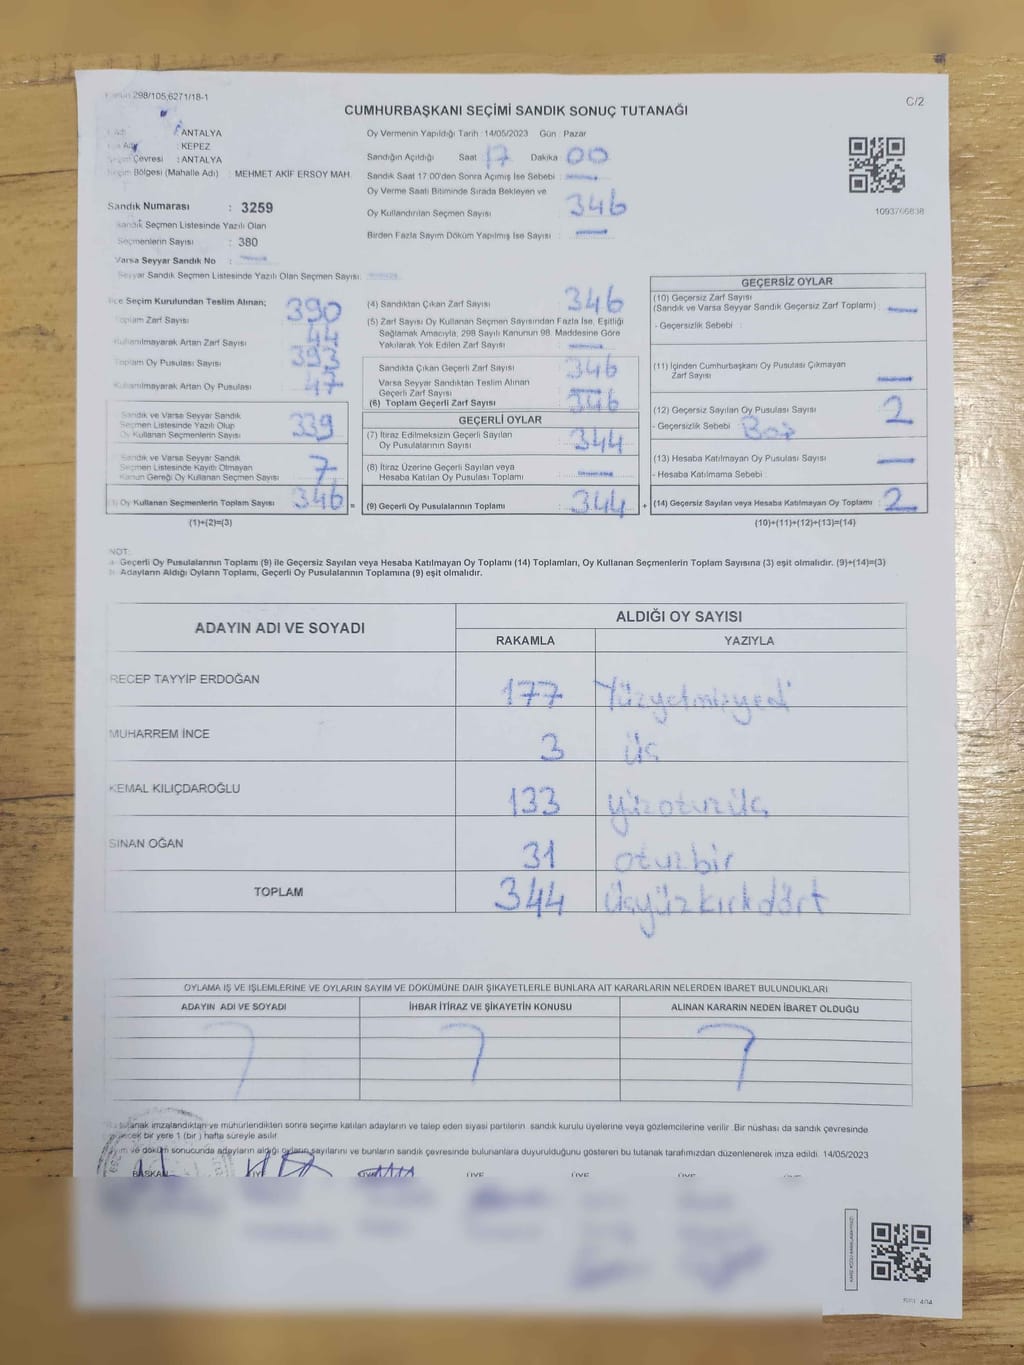 298/105,6271/18-1
C/2
CUMHURBAŞKANI SEÇİMİ SANDIK SONUÇ TUTANAĞI
ANTALYA
KEPEZ
Çevresi : ANTALYA
Bölgesi (Mahalle Adı) : MEHMET AKİF ERSOY MAH.
Sandık Numarası : 3259
Sandık Seçmen Listesinde Yazılı Olan
Seçmenlerin Sayısı : 380
Varsa Seyyar Sandık No :
Seyyar Sandık Seçmen Listesinde Yazılı Olan Seçmen Sayısı:
Oy Vermenin Yapıldığı Tarih :14/05/2023 Gün : Pazar
Sandığın Açıldığı Saat : 17 Dakika : 00
Sandık Saat 17:00'den Sonra Açılmış İse Sebebi :
Oy Verme Saati Bitiminde Sırada Bekleyen ve
Oy Kullandırılan Seçmen Sayısı : 346
Birden Fazla Sayım Döküm Yapılmış İse Sayısı :
1093766838
İlçe Seçim Kurulundan Teslim Alınan;
Toplam Zarf Sayısı : 390
Kullanılmayarak Artan Zarf Sayısı : 44
Toplam Oy Pusulası Sayısı : 393
Kullanılmayarak Artan Oy Pusulası : 47
Sandık ve Varsa Seyyar Sandık
Seçmen Listesinde Yazılı Olup
Oy Kullanan Seçmenlerin Sayısı : 339
Sandık ve Varsa Seyyar Sandık
Seçmen Listesinde Kayıtlı Olmayan
Kanun Gereği Oy Kullanan Seçmen Sayısı : 7
(3) Oy Kullanan Seçmenlerin Toplam Sayısı : 346 =
(1)+(2)=(3)
(4) Sandıktan Çıkan Zarf Sayısı : 346
(5) Zarf Sayısı Oy Kullanan Seçmen Sayısından Fazla İse, Eşitliği
Sağlamak Amacıyla, 298 Sayılı Kanunun 98. Maddesine Göre
Yakılarak Yok Edilen Zarf Sayısı :
Sandıkta Çıkan Geçerli Zarf Sayısı : 346
Varsa Seyyar Sandıktan Teslim Alınan
Geçerli Zarf Sayısı
(6) Toplam Geçerli Zarf Sayısı : 346
GEÇERLİ OYLAR
(7) İtiraz Edilmeksizin Geçerli Sayılan
Oy Pusulalarının Sayısı : 344
(8) İtiraz Üzerine Geçerli Sayılan veya
Hesaba Katılan Oy Pusulası Toplamı :
(9) Geçerli Oy Pusulalarının Toplamı : 344 +
GEÇERSİZ OYLAR
(10) Geçersiz Zarf Sayısı
(Sandık ve Varsa Seyyar Sandık Geçersiz Zarf Toplamı) :
- Geçersizlik Sebebi :
(11) İçinden Cumhurbaşkanı Oy Pusulası Çıkmayan
Zarf Sayısı :
(12) Geçersiz Sayılan Oy Pusulası Sayısı : 2
- Geçersizlik Sebebi : Boş
(13) Hesaba Katılmayan Oy Pusulası Sayısı :
- Hesaba Katılmama Sebebi :
(14) Geçersiz Sayılan veya Hesaba Katılmayan Oy Toplamı : 2
(10)+(11)+(12)+(13)=(14)
NOT:
a- Geçerli Oy Pusulalarının Toplamı (9) ile Geçersiz Sayılan veya Hesaba Katılmayan Oy Toplamı (14) Toplamları, Oy Kullanan Seçmenlerin Toplam Sayısına (3) eşit olmalıdır. (9)+(14)=(3)
b- Adayların Aldığı Oyların Toplamı, Geçerli Oy Pusulalarının Toplamına (9) eşit olmalıdır.
ADAYIN ADI VE SOYADI
ALDIĞI OY SAYISI
RAKAMLA YAZIYLA
RECEP TAYYİP ERDOĞAN 177 Yüzyetmişyedi
MUHARREM İNCE 3 üç
KEMAL KILIÇDAROĞLU 133 yüzotuzüç
SİNAN OĞAN 31 otuzbir
TOPLAM 344 üçyüzkırkdört
OYLAMA İŞ VE İŞLEMLERİNE VE OYLARIN SAYIM VE DÖKÜMÜNE DAİR ŞİKAYETLERLE BUNLARA AİT KARARLARIN NELERDEN İBARET BULUNDUKLARI
ADAYIN ADI VE SOYADI İHBAR İTİRAZ VE ŞİKAYETİN KONUSU ALINAN KARARIN NEDEN İBARET OLDUĞU
tutanak imzalandıktan ve mühürlendikten sonra seçime katılan adayların ve talep eden siyasi partilerin sandık kurulu üyelerine veya gözlemcilerine verilir. Bir nüshası da sandık çevresinde
bir yere 1 (bir) hafta süreyle asılır.
ve döküm sonucunda adayların aldığı oyların sayılarını ve bunların sandık çevresinde bulunanlara duyurulduğunu gösteren bu tutanak tarafımızdan düzenlenerek imza edildi. 14/05/2023
BAŞKAN ÜYE ÜYE ÜYE ÜYE ÜYE